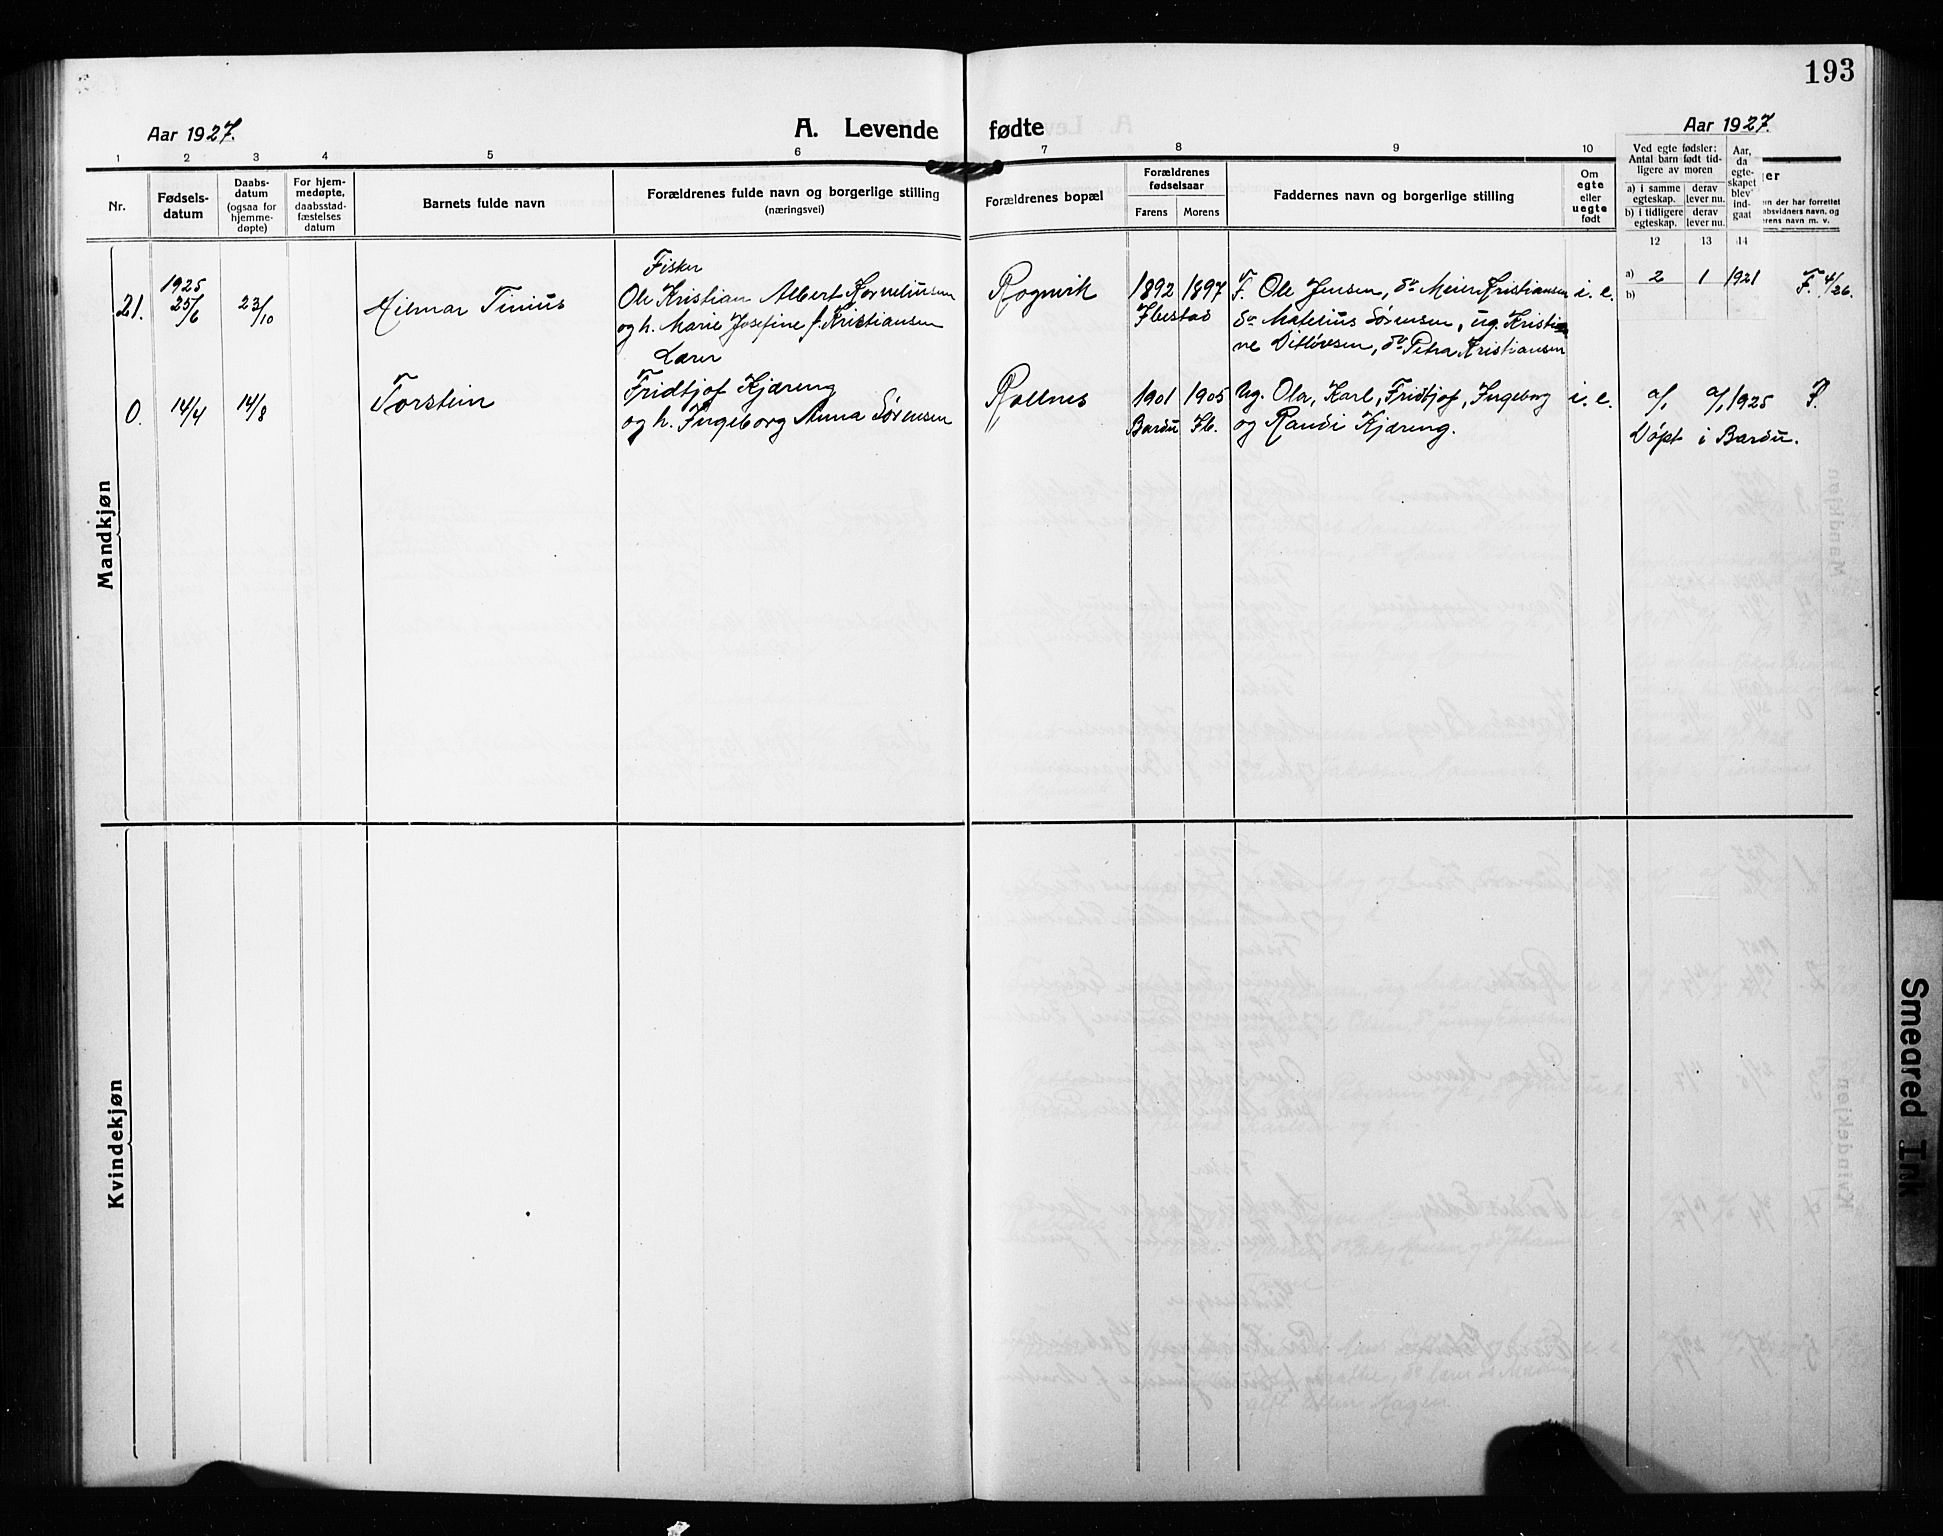 193
Aar 1927.
A. Levende fødte
Aar 1927.
1 2 3 4 5 6 7 8 9 10
Nr.
Fødsels-
datum
Daabs-
datum
(ogsaa for
hjemme-
døpte)
For hjem-
medøpte,
daabsstad-
fæstelses
datum
Barnets fulde navn
Forældrenes fulde navn og borgerlige stilling
(næringsvei)
Forældrenes bopæl
Forældrenes
fødselsaar
Farens Morens
Faddernes navn og borgerlige stilling
Om
egte
eller
uegte
født
Ved egte fødsler:
Antal barn født tid-
ligere av moren
a) i samme
egteskap.
derav
lever nu.
b) i tidligere
egteskap.
derav
lever nu.
Aar,
da
egte-
skapet
blev
ind-
gaat
12 13 14
en der har forrettet
absvidners navn, og
erens navn m. v.
Mandkjøn
21.
1925
25/6
23/10
Hilmar Tinius
Fisker
Ole Kristian Albert Korneliusen
og h. Marie Josefine f. Kristiansen
Rognvik
1892 1897
Ibestad
F. Ole Jensen, do Meier Kristiansen
do Matelius Sørensen, ug. Kristi
ne Ditlovsen, do Petra Kristiansen
i. e.
a) 2 1 1921
b)
F. 4/26.
0.
14/4
14/8
Torstein
Lærer
Fridtjof Kjæreng
og h. Ingeborg Anna Sørensen
Rollnes
1901 1905
Bardu Ib.
Ug. Ola, Karl, Fridtjof, Ingeborg
og Randi Kjæreng.
i. e.
a/1 a/1 1925 F.
Døpt i Bardu.
Kvindekjøn
Smeared Ink